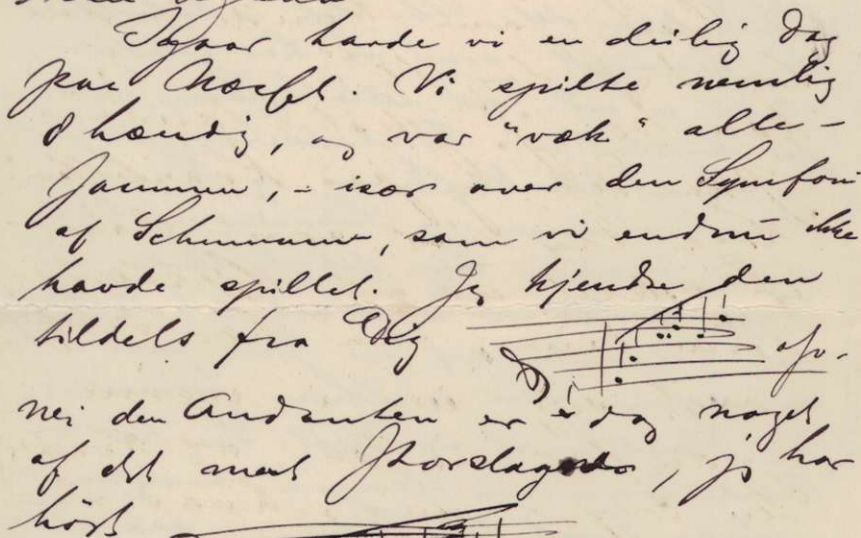 Igaar havde vi en deilig Dag
paa Næsset. Vi spilte nemlig
8 hændig, og var "væk" alle-
sammen, - især over den Symfoni
af Schumann, som vi endnu ikke
havde spillet. Jeg kjendte den
tildels fra Dig
nei den Andanten er dog noget
af det mest Storslagende, jeg har
hört